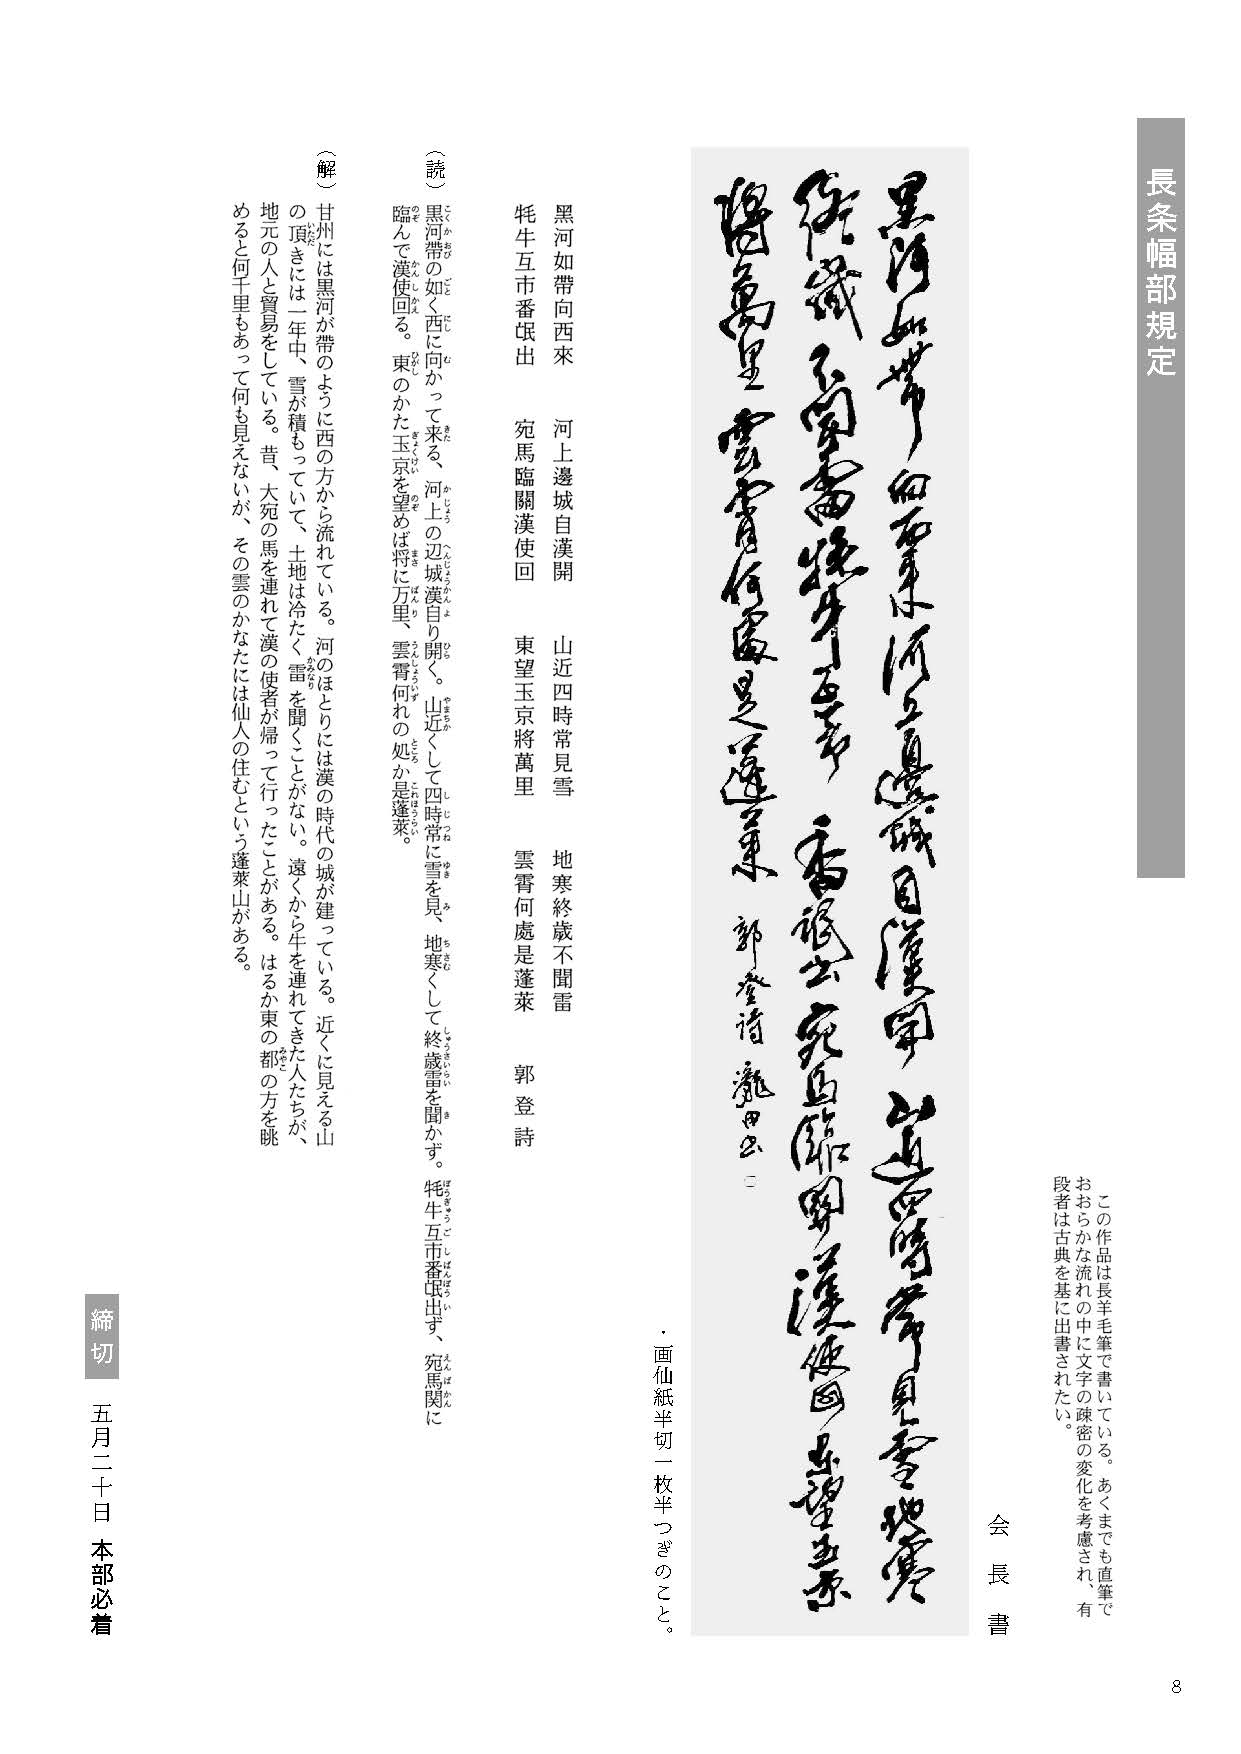 長条幅部規定
この作品は長羊毛筆で書いている。あくまでも直筆で
おおらかな流れの中に文字の疎密の変化を考慮され、有
段者は古典を基に出書されたい。
会長書
黒河如帶向西來河上邊城自漢開山近四時常見雪地寒
終歲不聞雷牦牛互市番氓出宛馬臨關漢使回東望玉京
將萬里雲霄何處是蓬萊 郭登詩 龍田書
・画仙紙半切一枚半つぎのこと。
黑河如帶向西來 河上邊城自漢開 山近四時常見雪 地寒終歲不聞雷
牦牛互市番氓出 宛馬臨關漢使回 東望玉京將萬里 雲霄何處是蓬萊 郭登詩
(読)
黒河帯の如く西に向かって来る、河上の辺城漢自り開く。山近くして四時常に雪を見、地寒くして終歳雷を聞かず。牦牛互市番氓出ず、宛馬関に
臨んで漢使回る。東のかた玉京を望めば将に万里、雲霄何れの処か是蓬萊。
(解)
甘州には黒河が帯のように西の方から流れている。河のほとりには漢の時代の城が建っている。近くに見える山
の頂きには一年中、雪が積もっていて、土地は冷たく雷を聞くことがない。遠くから牛を連れてきた人たちが、
地元の人と貿易をしている。昔、大宛の馬を連れて漢の使者が帰って行ったことがある。はるか東の都の方を眺
めると何千里もあって何も見えないが、その雲のかなたには仙人の住むという蓬萊山がある。
締切
五月二十日 本部必着
8